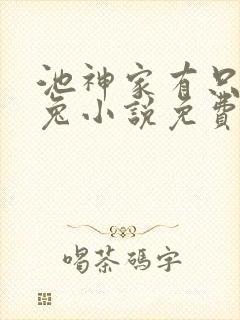 池神家有只
兔小說免費
喝茶碼字